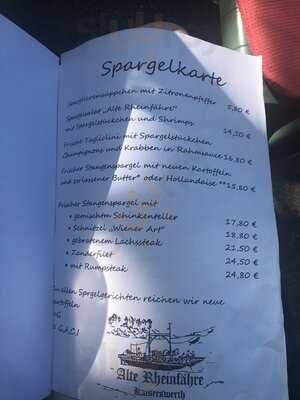 Spargelkarte
mit Zitronenpfeffer 5,80 €
Spargelsalat „Alte Rheinfähre"
mit Spargelstückchen und Shrimps 14,50 €
Frische Tagliolini mit Spargelstückchen
Champignons und Krabben in Rahmsauce 16,80 €
Frischer Stangenspargel mit neuen Kartoffeln
und zerlassener Butter* oder Hollandaise **15,80 €
Frischer Stangenspargel mit
• gemischtem Schinkenteller 17,80 €
• Schnitzel „Wiener Art" 18,80 €
• gebratenem Lachssteak 21,50 €
• Zanderfilet 24,50 €
• mit Rumpsteak 24,80 €
allen Sprgelgerichten reichen wir neue
Alte Rheinfähre
Kaiserswerth